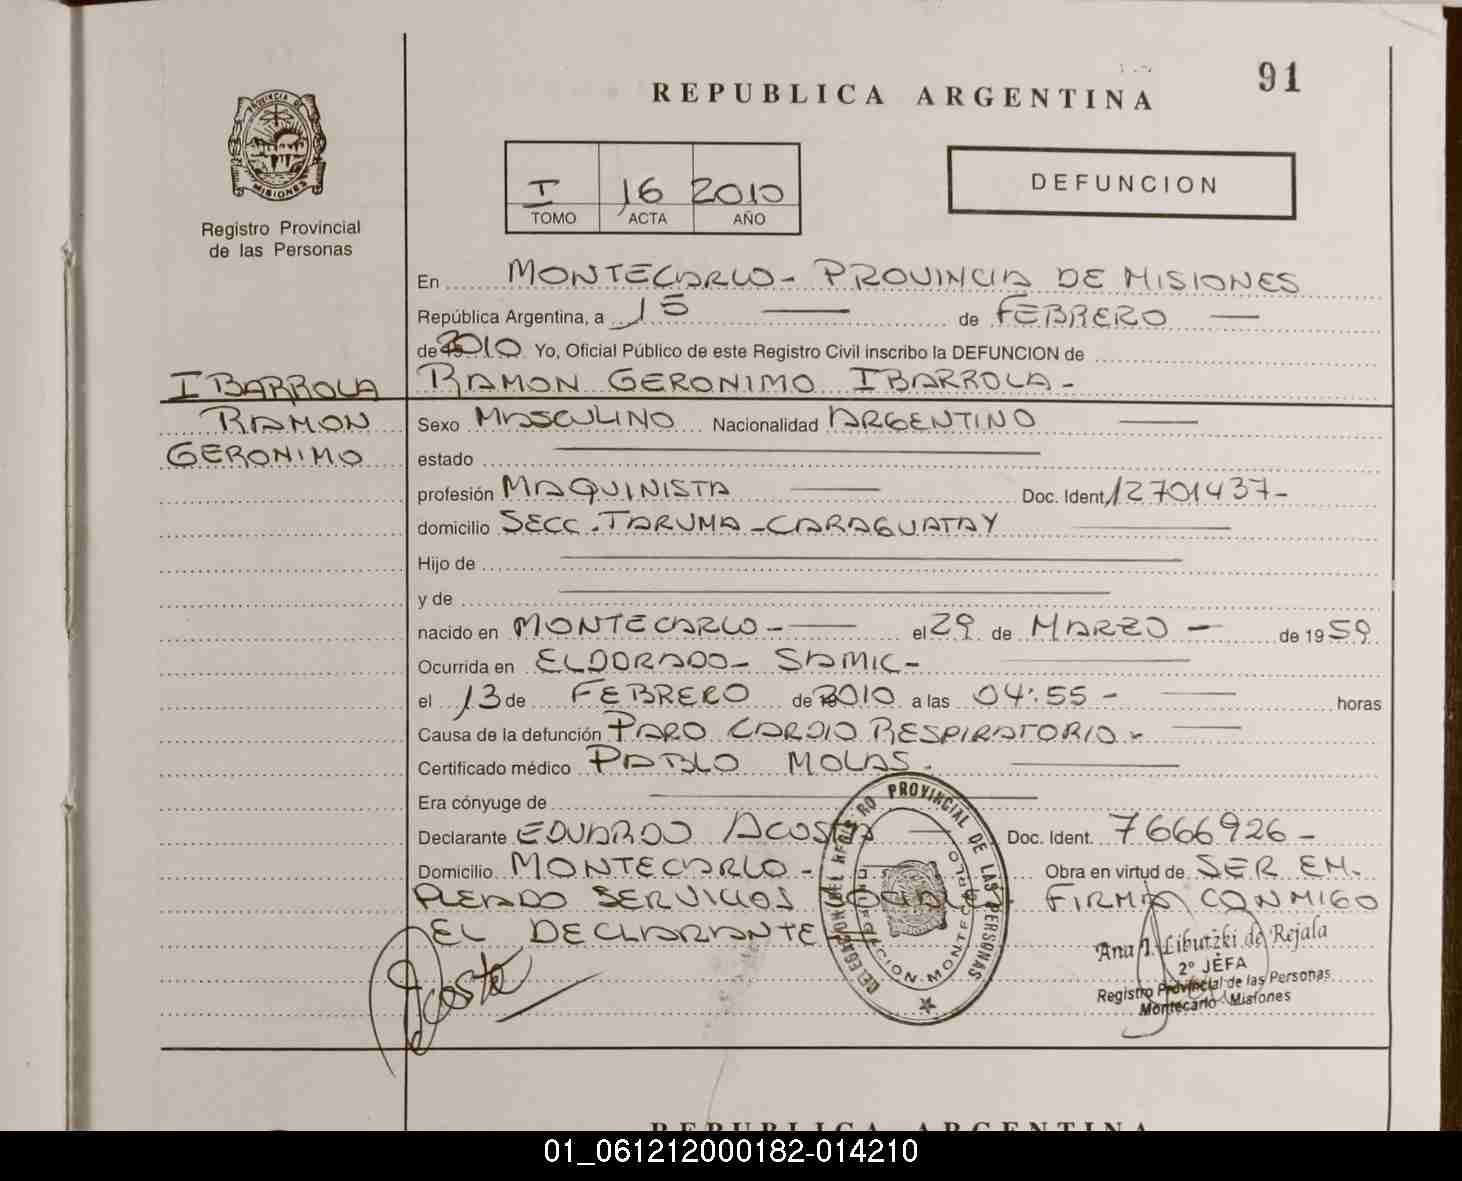 91
REPUBLICA ARGENTINA
PROVINCIA DE
MISIONES
Registro Provincial
de las Personas
I 16 2010
TOMO ACTA AÑO
DEFUNCION
En MONTECARLO - PROVINCIA DE MISIONES
República Argentina, a 15 — de FEBRERO —
de 2010 Yo, Oficial Público de este Registro Civil inscribo la DEFUNCION de
RAMON GERONIMO IBARROLA -
IBARROLA
RAMON
GERONIMO
Sexo MASCULINO Nacionalidad ARGENTINO —
estado —
profesión MAQUINISTA — Doc. Ident. 12701437-
domicilio SECC. TARUMA - CARAGUATAY —
Hijo de —
y de —
nacido en MONTECARLO - — el 29 de MARZO - de 1959
Ocurrida en ELDORADO - SAMIC - —
el 13 de FEBRERO de 2010 a las 04:55 - — horas
Causa de la defunción PARO CARDIO RESPIRATORIO - —
Certificado médico PABLO MOLAS. —
Era cónyuge de —
Declarante EDUARDO ACOSTA — Doc. Ident. 7666926 -
Domicilio MONTECARLO - — Obra en virtud de SER EM-
PLEADO SERVICIOS SOCIALES. FIRMA CONMIGO
EL DECLARANTE
Acosta
DELEGACION DEL REGISTRO PROVINCIAL DE LAS PERSONAS
DELEGACION MONTECARLO
Ana I. Libutzki de Rejala
2º JEFA
Registro Provincial de las Personas
Montecarlo - Misiones
REPUBLICA ARGENTINA
01_061212000182-014210